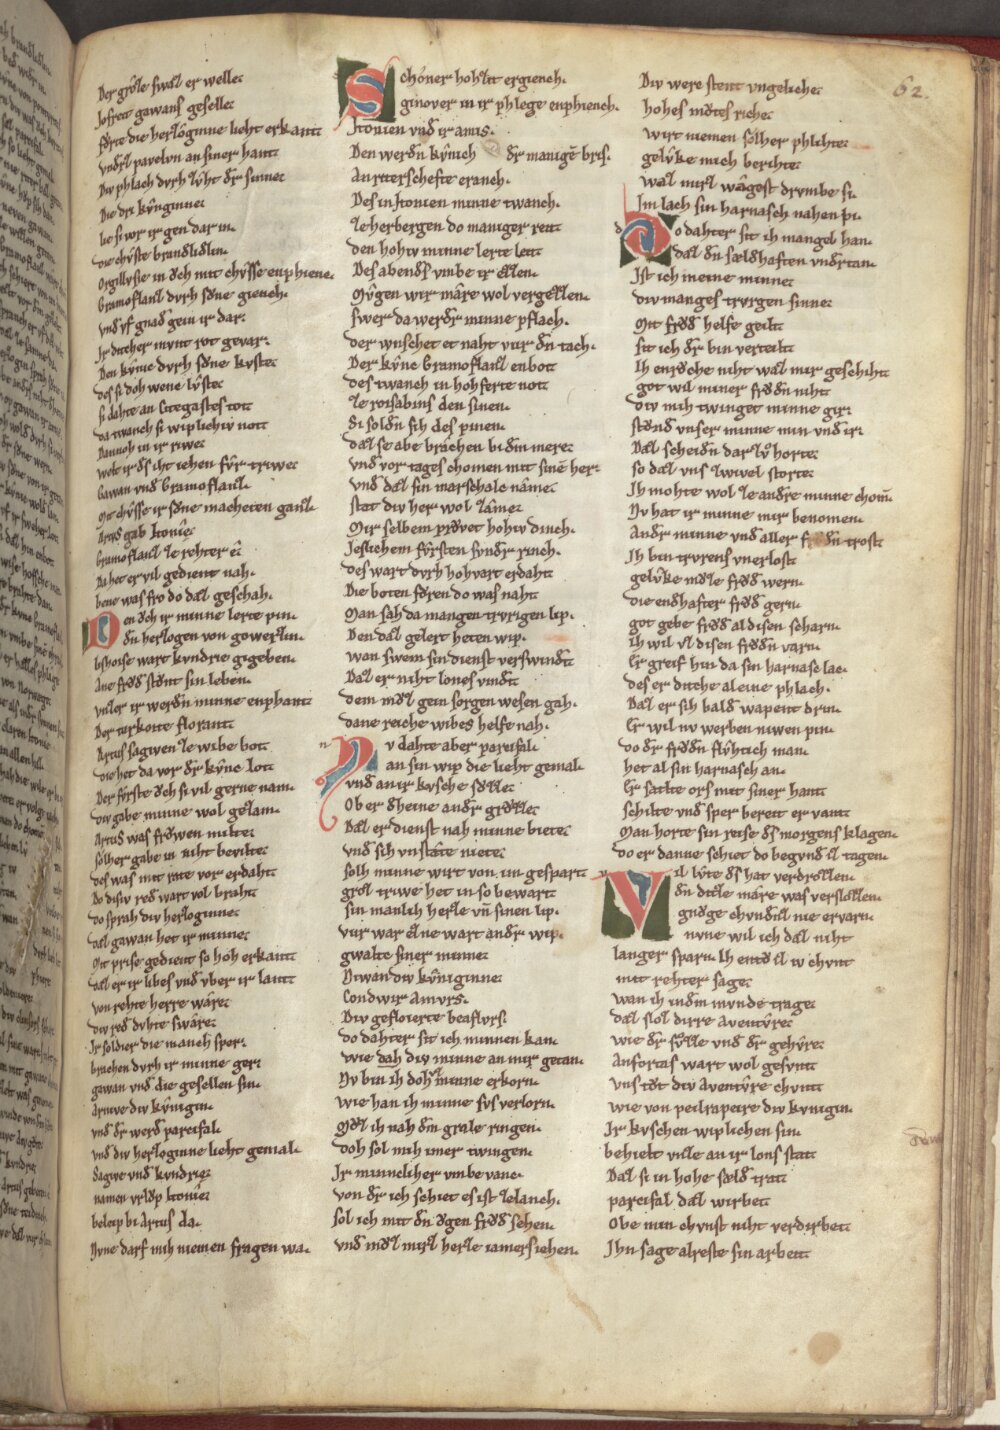 62.
Der groze swaz er welle.
Jofreit gawans geselle.
fůrte die herzoginne lieht erkant.
vnderz pavelvn an siner hant.
Div phlach dvrh zvht der sinne.
Die dri kvnginne.
lie si vor ir gen dar in.
die chvste brandlidelin.
Orgillvsie in ǒch mit chvsse enphienc.
Gramoflanz dvrh sůne giench.
vnd vf gnad gein ir dar.
Jr svzer mvnt rot gevar.
Den kvnic dvrh sůne kvste.
des si doh wene lvste.
si dahte an Citegastes tot
da twanch si wiplichiv not
Dannoh in ir riwe.
welt ir des iht iehen fvr triwe.
Gawan vnd Gramoflanz.
Mit chvsse ir sůne macheten ganz.
Artus gab Itonie.
Gramoflanz ze rehter e.
Da het er vil gedient nah.
bene was fro do daz geschah.
Den ǒch ir minne lerte pin.
den herzogen von gowerzin.
lishoise wart kvndrie gigeben.
Ane frǒd stůnt sin leben.
vnzer ir werden minne enphant
Der turkoite florant.
Artus sagiwen ze wibe bot.
die het da vor der kvne lot.
Der fvrste ǒch si vil gerne nam.
div gabe minne wol gezam.
Artus was frǒwen milte.
sölher gabe in niht bevilte.
des was mit rate vor erdaht.
Do disiv red wart vol braht.
do sprah div herzoginne.
daz gawan het ir minne.
Mit prise gedient so hoh erkant.
daz er ir libes vnd vber ir lant.
von rehte herre wære.
div red dvhte swære.
Jr soldier die manch sper.
brachen dvrh ir minne ger.
gawan vnd die gesellen sin.
Arnive div kvnigin.
vnd der werd parcifal.
vnd div herzoginne lieht gemal.
Sagive vnd kvndrie.
namen vrlǒp Itonie.
beleip bi Artus da.
Nvne darf mih niemen fragen wa.
Schöner hohzit ergiench.
ginover in ir phlege enphiench.
Itonien vnd ir amis.
Den werden kvnich der manige bris.
An riterschefte eranch.
Des in Itonien minne twanch.
ze herbergen do maniger reit
den hohiv minne lerte leit
Des abends vmbe ir ezzen.
Mvgen wir mære wol vergezzen.
swer da werder minne pflach.
der wnschet et naht vur den tach.
Der kvne Gramoflanz enbot
des twanch in hohferte not
ze roisabins den sinen.
Si solden sih des pinen.
daz se abe brachen bi dem mere.
vnd vor tages chomen mit sine her.
vnd daz sin marschalc næme.
stat div her wol zæme.
Mir selbem prvvet hohiv dinch.
Jeslichem fvrsten svnder rinch.
des wart dvrh hohvart erdaht
Die boten fůren do was naht.
Man sah da mangen trvrigen lip.
Den daz gelert heten wip.
wan swem sin dienst verswindet
Daz er niht lones vindet
dem mvz gein sorgen wesen gah.
dane reiche wibes helfe nah.
Nv dahte aber parcifal
an sin wip die lieht gemal.
vnd an ir kvsche sůzze.
Ob er dheine ander grůzze
Daz er dienst nah minne biete.
vnd sih vnstæte niete.
solh minne wirt von im gespart.
groz triwe het in so bewart.
sin manlih herze vñ sinen lip.
vur war ezne wart ander wip.
gwaltic siner minne.
Niwan div kvniginne.
Condwir Amvrs.
Div gefloierte beaflvrs.
do dahter sit ich minnen kan.
wie dah div minne an mir getan.
Nv bin ih doh vz minne erkorn.
wie han ih minne svs verlorn.
Mvz ih nah dem grale ringen.
doh sol mih imer twingen.
Jr minneliher vmbe vanc.
von der ich schiet es ist ze lanch.
sol ich mit den ǒgen frǒd sehen.
vnd mvz mirz herze iamer iehen.
Div were stent vngeliche.
hohes mvtes riche.
wirt niemen solher phlihte.
gelvke mich berihte.
waz mirz wægest drvmbe si.
Im lach sin harnasch nahen pi.
Do dahter sit ih mangel han.
daz den sældhaften vndertan.
Ist ich meine minne.
div manges trvrgen sinne.
Mit frǒd helfe geilt.
sit ich der bin verteilt.
Ih enrǒche niht waz mir geschiht.
got wil miner frǒden niht.
div mih twinget minne gir.
stůnd vnser minne min vnd ir.
Daz scheiden darzv horte.
so daz vns zwivel storte.
Jh mohte wol ze andre minne chom.
Nv hat ir minne mir benomen.
Ander minne vnd aller frǒden trost.
Jh bin trvrens vnerlost.
gelvke mvze frǒd wern.
die endhafter frǒd gern.
got gebe frǒd al disen scharn.
Ih wil vz disen frǒden varn.
Er greif hin da sin harnasc lac.
des er dicche aleine phlach.
Daz er sih bald wapent drin.
Er wil nv werben niwen pin.
do der frǒden flvhtich man.
het al sin harnasch an.
Er satlte ors mit siner hant
schilte vnd sper bereit er vant
Man horte sin reise des morgens klagen.
do er danne schiet do begvnd iz tagen.
Vil lvte des hat verdrozzen.
den diz mære was verslozzen.
gnůge chvnden nie ervarn.
nvne wil ich daz niht
langer sparn. Ih entv iz iv chvnt
mit rehter sage.
wan ih indem mvnde trage.
daz sloz dirre aventvre.
wie der svzze vnd der gehvre.
Anfortas wart wol gesvnt.
vns tvt div Aventvre chvnt
wie von peilrapeire div kvnigin.
Jr kvschen wiplichen sin.
behielt vnze an ir lons stat
Daz si in hohe sæld trat
parcifal daz wirbet.
Obe min chvnst niht verdirbet.
Jhn sage alreste sin arbeit.